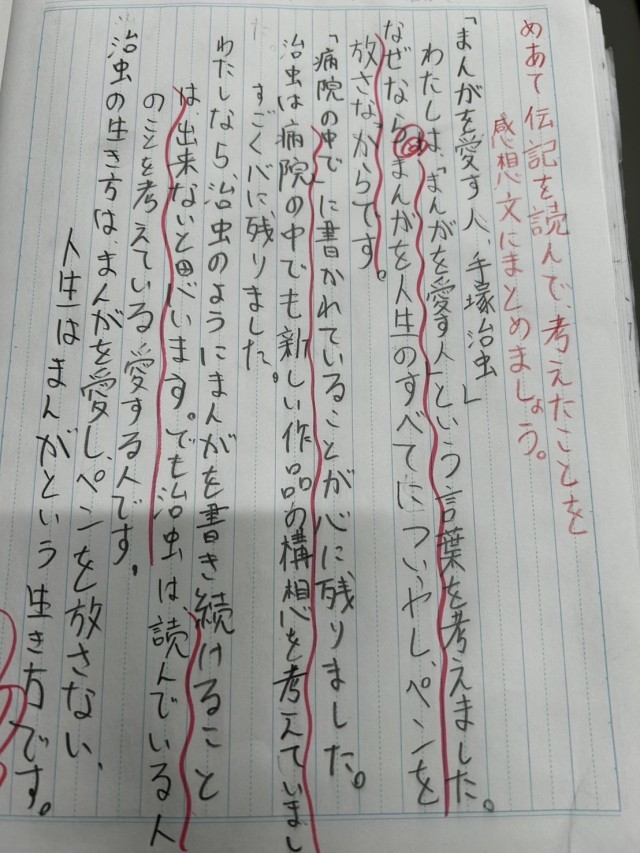 めあて 伝記を読んで、考えたことを
感想文にまとめましょう。
「まんがを愛す人、手塚治虫」
わたしは、「まんがを愛す人」という言葉を考えました。
なぜなら、まんがを人生のすべてについやし、ペンを
放さないからです。
「病院の中で」に書かれていることが心に残りました。
治虫は病院の中でも新しい作品の構想を考えていまし
た。
すごく心に残りました。
わたしなら、治虫のようにまんがを書き続けること
は、出来ないと思います。でも治虫は、読んでいる人
のことを考えている愛する人です。
治虫の生き方は、まんがを愛し、ペンを放さない、
人生はまんがという生き方です。